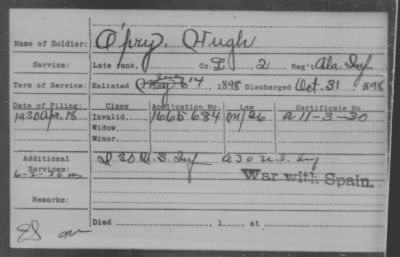 Name of Soldier: O'pry, Hugh
Service: Late rank, Co. L, 2 Reg't Ala. Inf
Term of Service: Enlisted May 14 1898 Discharged Oct. 31 1898
Date of Filing: Class Application No. Law Certificate No.
1930 Apr. 18 Invalid, 1665684 A 11-3-30
Widow,
Minor,
Additional Services: D 30 U.S. Inf A 30 U.S. Inf
War with Spain.
Remarks:
Died , 1 , at